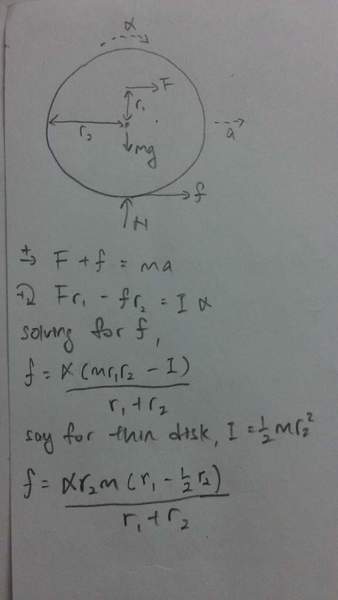 α
F
r₁
r₂
mg
a
f
N
→⁺ F + f = ma
+↻ Fr₁ - fr₂ = I α
solving for f,
f = α(mr₁r₂ - I)
r₁ + r₂
say for thin disk, I = ½mr₂²
f = αr₂m(r₁ - ½r₂)
r₁ + r₂